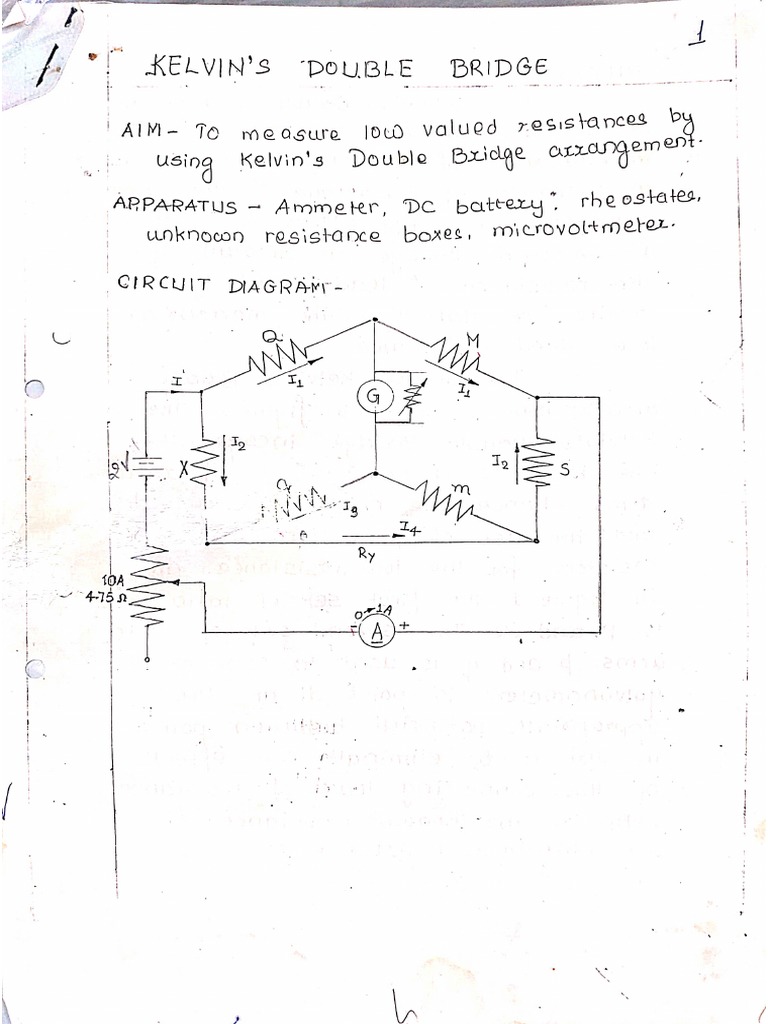 1
KELVIN'S DOUBLE BRIDGE
AIM - To measure low valued resistances by
using Kelvin's Double Bridge arrangement.
APPARATUS - Ammeter, DC battery, rheostates,
unknown resistance boxes, microvoltmeter.
CIRCUIT DIAGRAM -
Q
M
I
I1
I1
G
I2
X
2V
I2
S
q
m
I3
I4
Ry
10A
4.75 Ω
0-1A
- A +